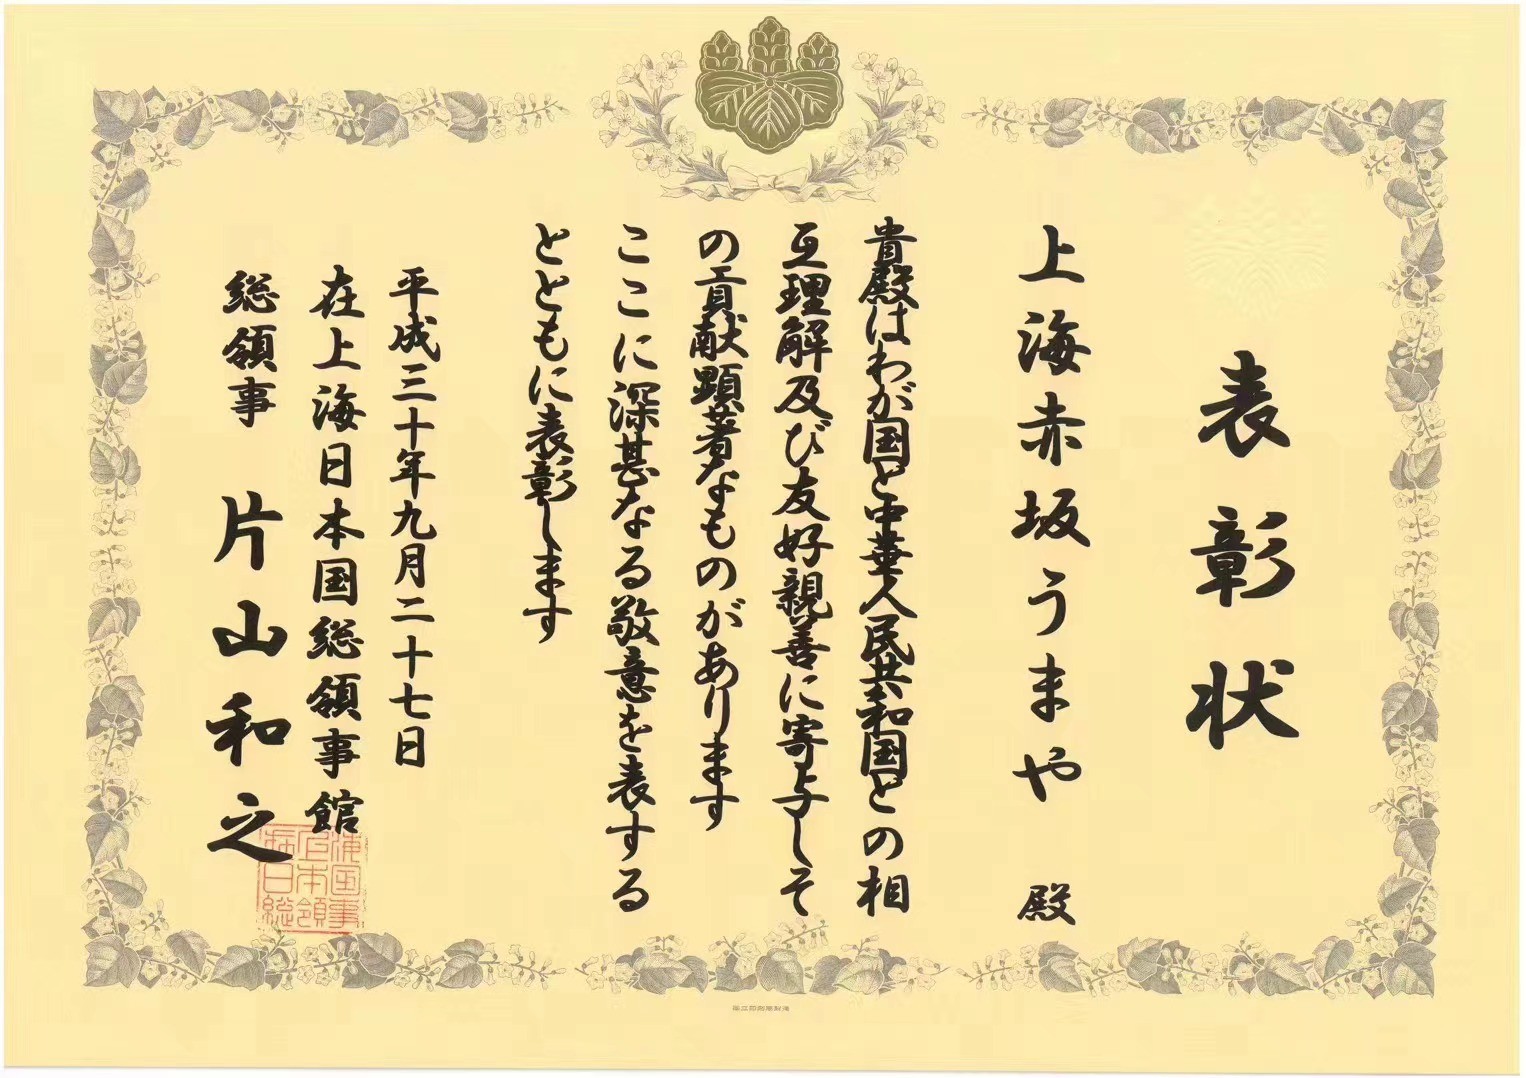 表彰状
上海赤坂うまや 殿
貴殿はわが国と中華人民共和国との相
互理解及び友好親善に寄与しそ
の貢献顕著なものがあります
ここに深甚なる敬意を表する
とともに表彰します
平成三十年九月二十七日
在上海日本国総領事館
総領事 片山和之